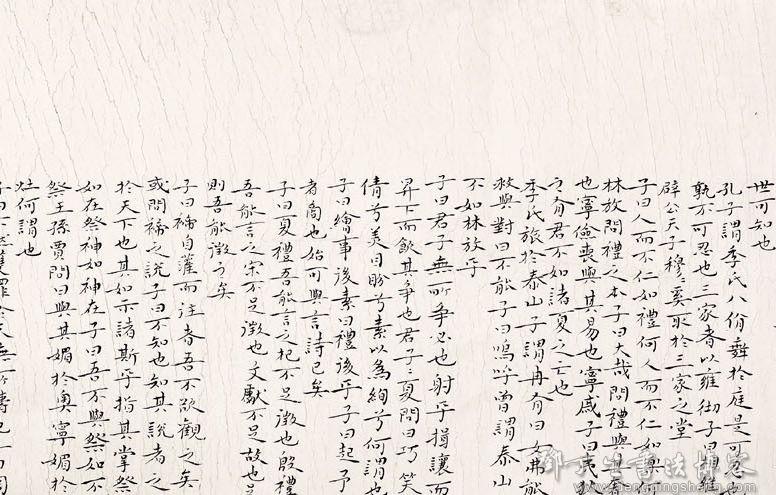 世可知也
孔子謂季氏八佾舞於庭是可
孰不可忍也三家者以雍徹子曰
辟公天子穆穆奚取於三家之堂
子曰人而不仁如禮何人而不仁如
林放問禮之本子曰大哉問禮與其奢
也寧儉喪與其易也寧戚子曰夷狄
之有君不如諸夏之亡也
季氏旅於泰山子謂冉有曰女弗能
救與對曰不能子曰嗚呼曾謂泰山
不如林放乎
子曰君子無所爭必也射乎揖讓而
昇下而飲其爭也君子子夏問曰巧笑
倩兮美目盼兮素以為絢兮何謂也
子曰繪事後素曰禮後乎子曰起予
者商也始可與言詩已矣
子曰夏禮吾能言之杞不足徵也殷禮
吾能言之宋不足徵也文獻不足故也足
則吾能徵之矣
子曰禘自灌而往者吾不欲觀之矣
或問禘之說子曰不知也知其說者之
於天下也其如示諸斯乎指其掌祭
如在祭神如神在子曰吾不與祭如不
祭王孫賈問曰與其媚於奧寧媚於
灶何謂也